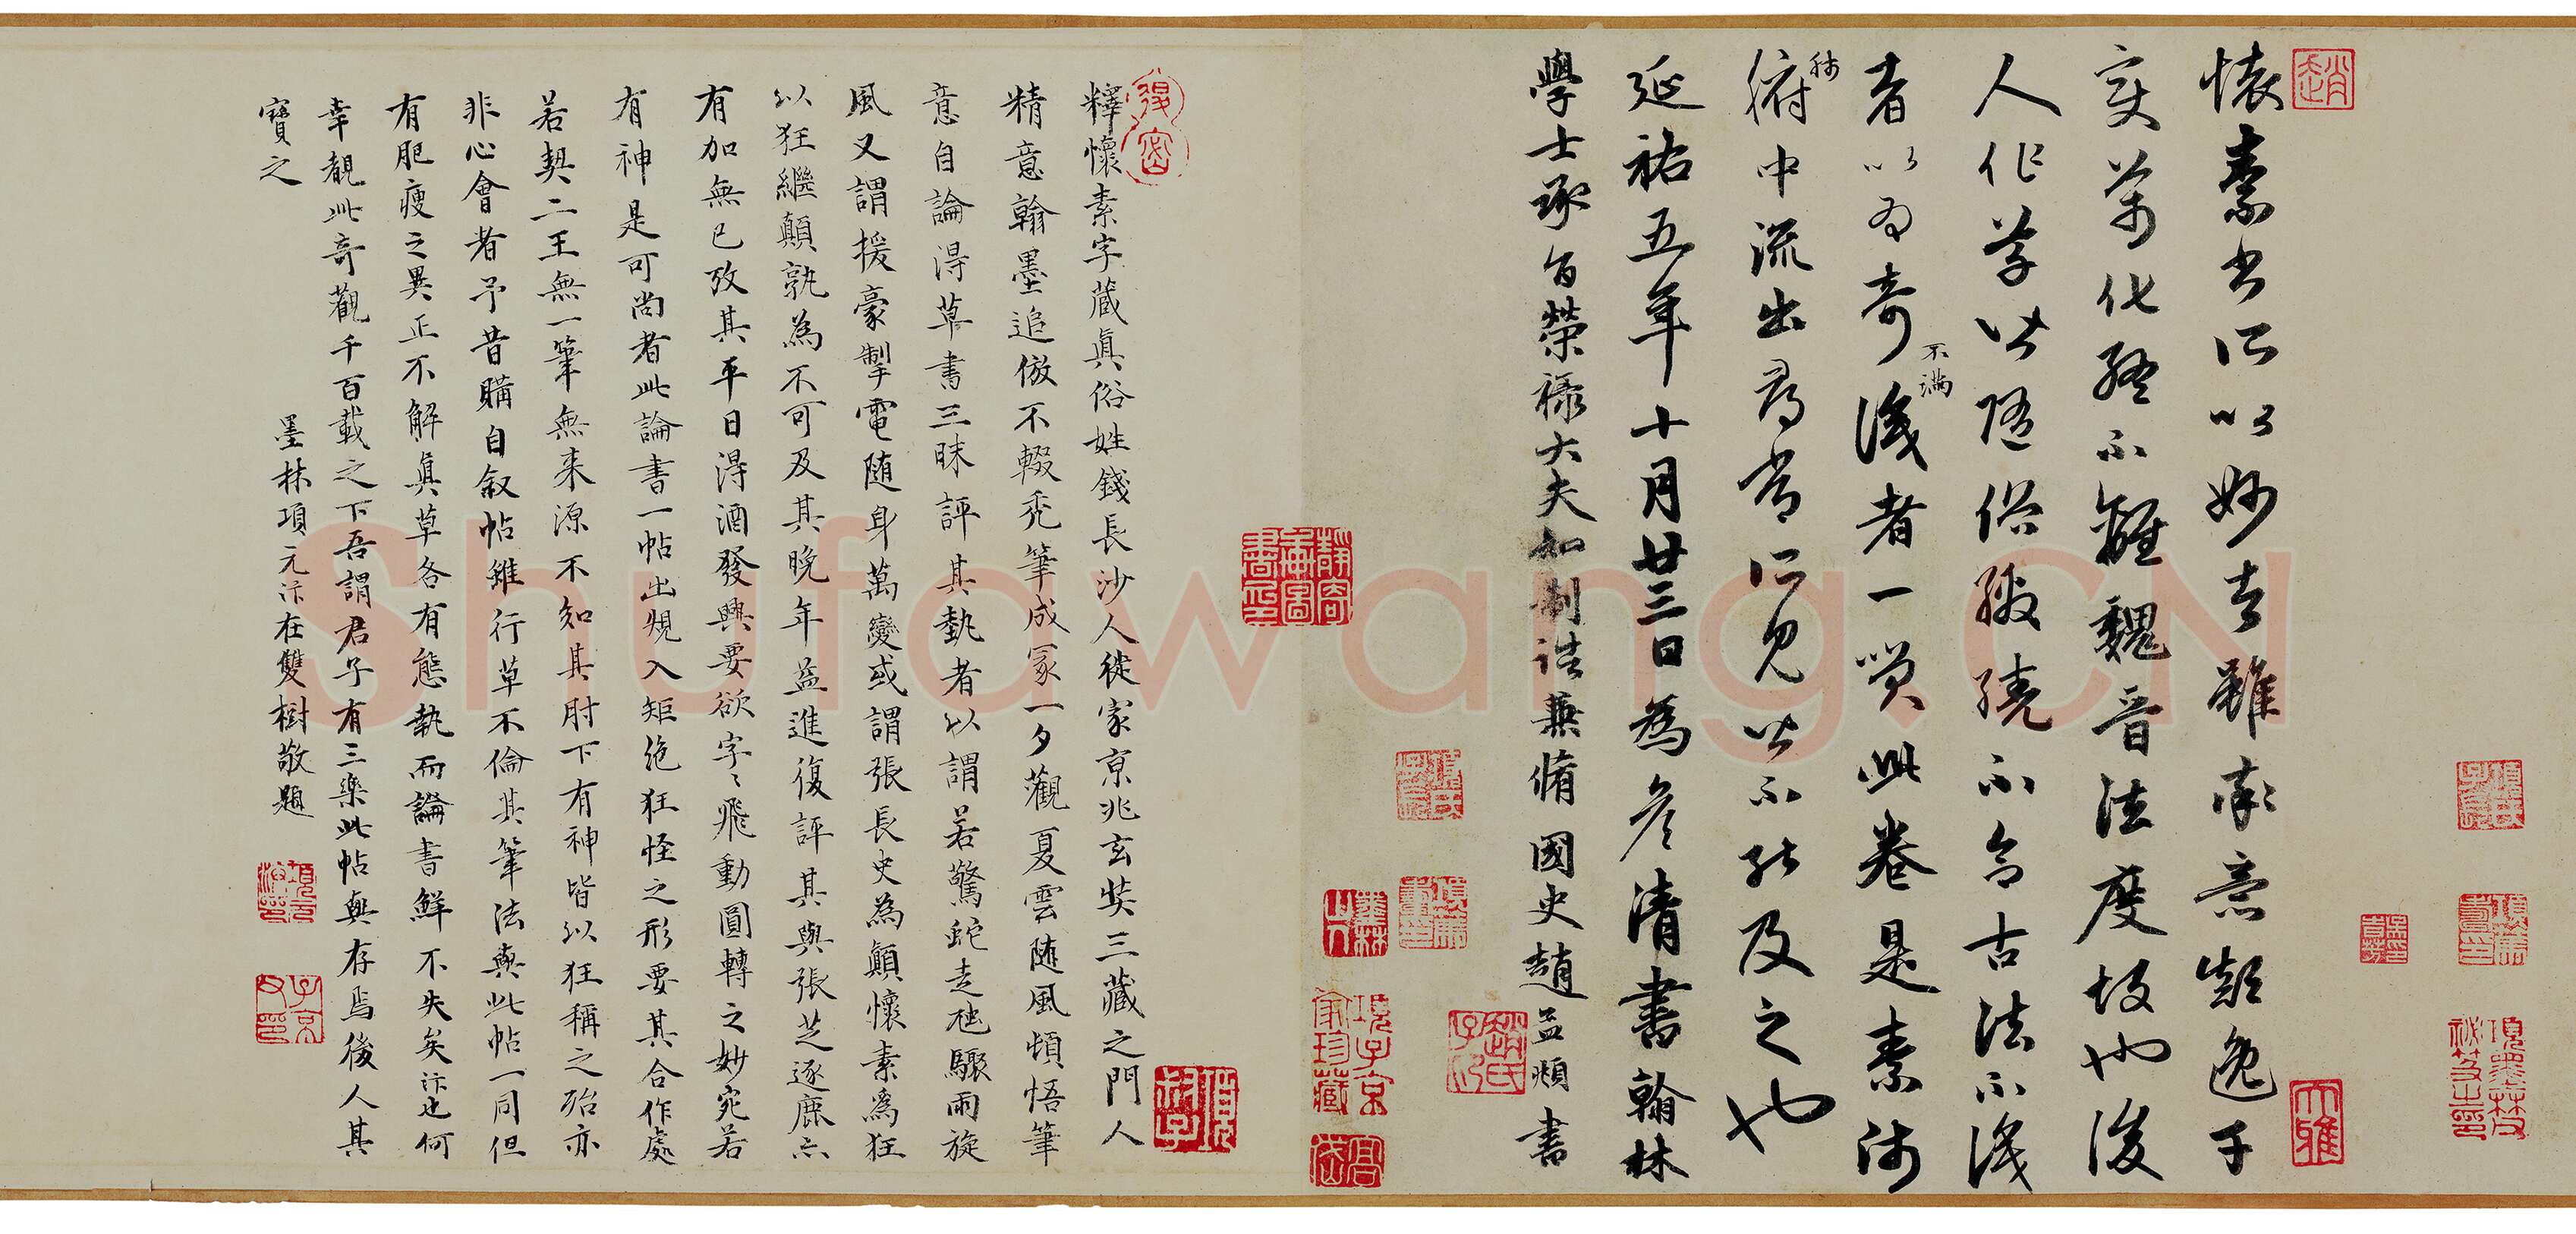 懷素書所以妙者雖率意顛逸千
變萬化終不離魏晉法度故也後
人作草皆隨俗繳繞不合古法不識
者以為奇不滿識者一笑此卷是素師
肺腑中流出尋常所見皆不能及之也
延祐五年十月廿三日為彥清書翰林
學士承旨榮祿大夫知制誥兼脩國史趙孟頫書
釋懷素字藏真俗姓錢長沙人徙家京兆玄奘三藏之門人
精意翰墨追倣不輟禿筆成冢一夕觀夏雲隨風頓悟筆
意自論淂草書三昧評其執者以謂若驚蛇走虺驟雨旋
風又謂援豪掣電隨身萬變或謂張長史為顛懷素為狂
以狂繼顛孰為不可及其晚年益進復評其與張芝逐鹿亦
有加無已攷其平日淂酒發興要欲字〻飛動圓轉之妙宛若
有神是可尚者此論書一帖出規入矩絕狂怪之形要其合作處
若契二王無一筆無来源不知其肘下有神皆以狂稱之殆亦
非心會者予昔購自叙帖雖行草不倫其筆法與此帖一同但
有肥瘦之異正不解真草各有態執而論書鮮不失矣汴也何
幸覩此奇觀千百載之下吾謂君子有三樂此帖與存焉後人其
寶之
墨林項元汴在雙樹敬題
趙
大雅
趙氏子昂
項元汴印
子京父印
墨林山人
項子京家珍藏
靜容齋圖書印
Shufawang.CN